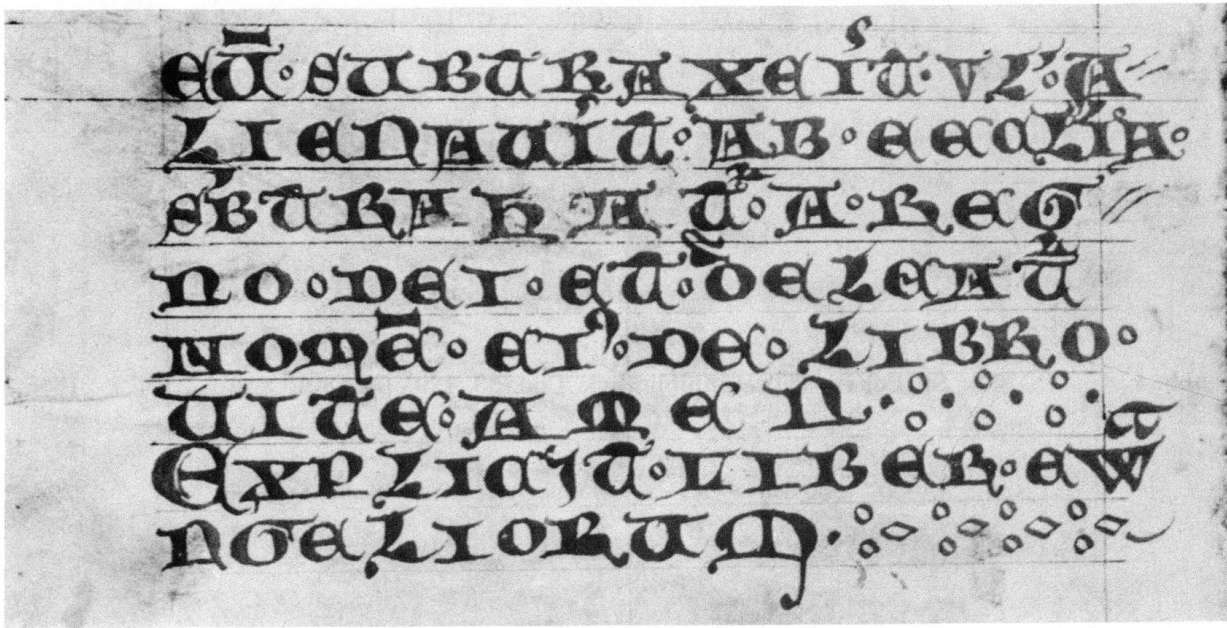 EŪ · SUBTRAXEIT · VL' · A//
LIENAUIT · AB · ECCLIA ·
SBTRAHAT · A · REG//
NO · DEI · ET · DELEAT
NOMĒ · EI' · DE · LIBRO ·
UITE · AMEN
EXPLICIT · LIBER · EWa
NGELIORUM